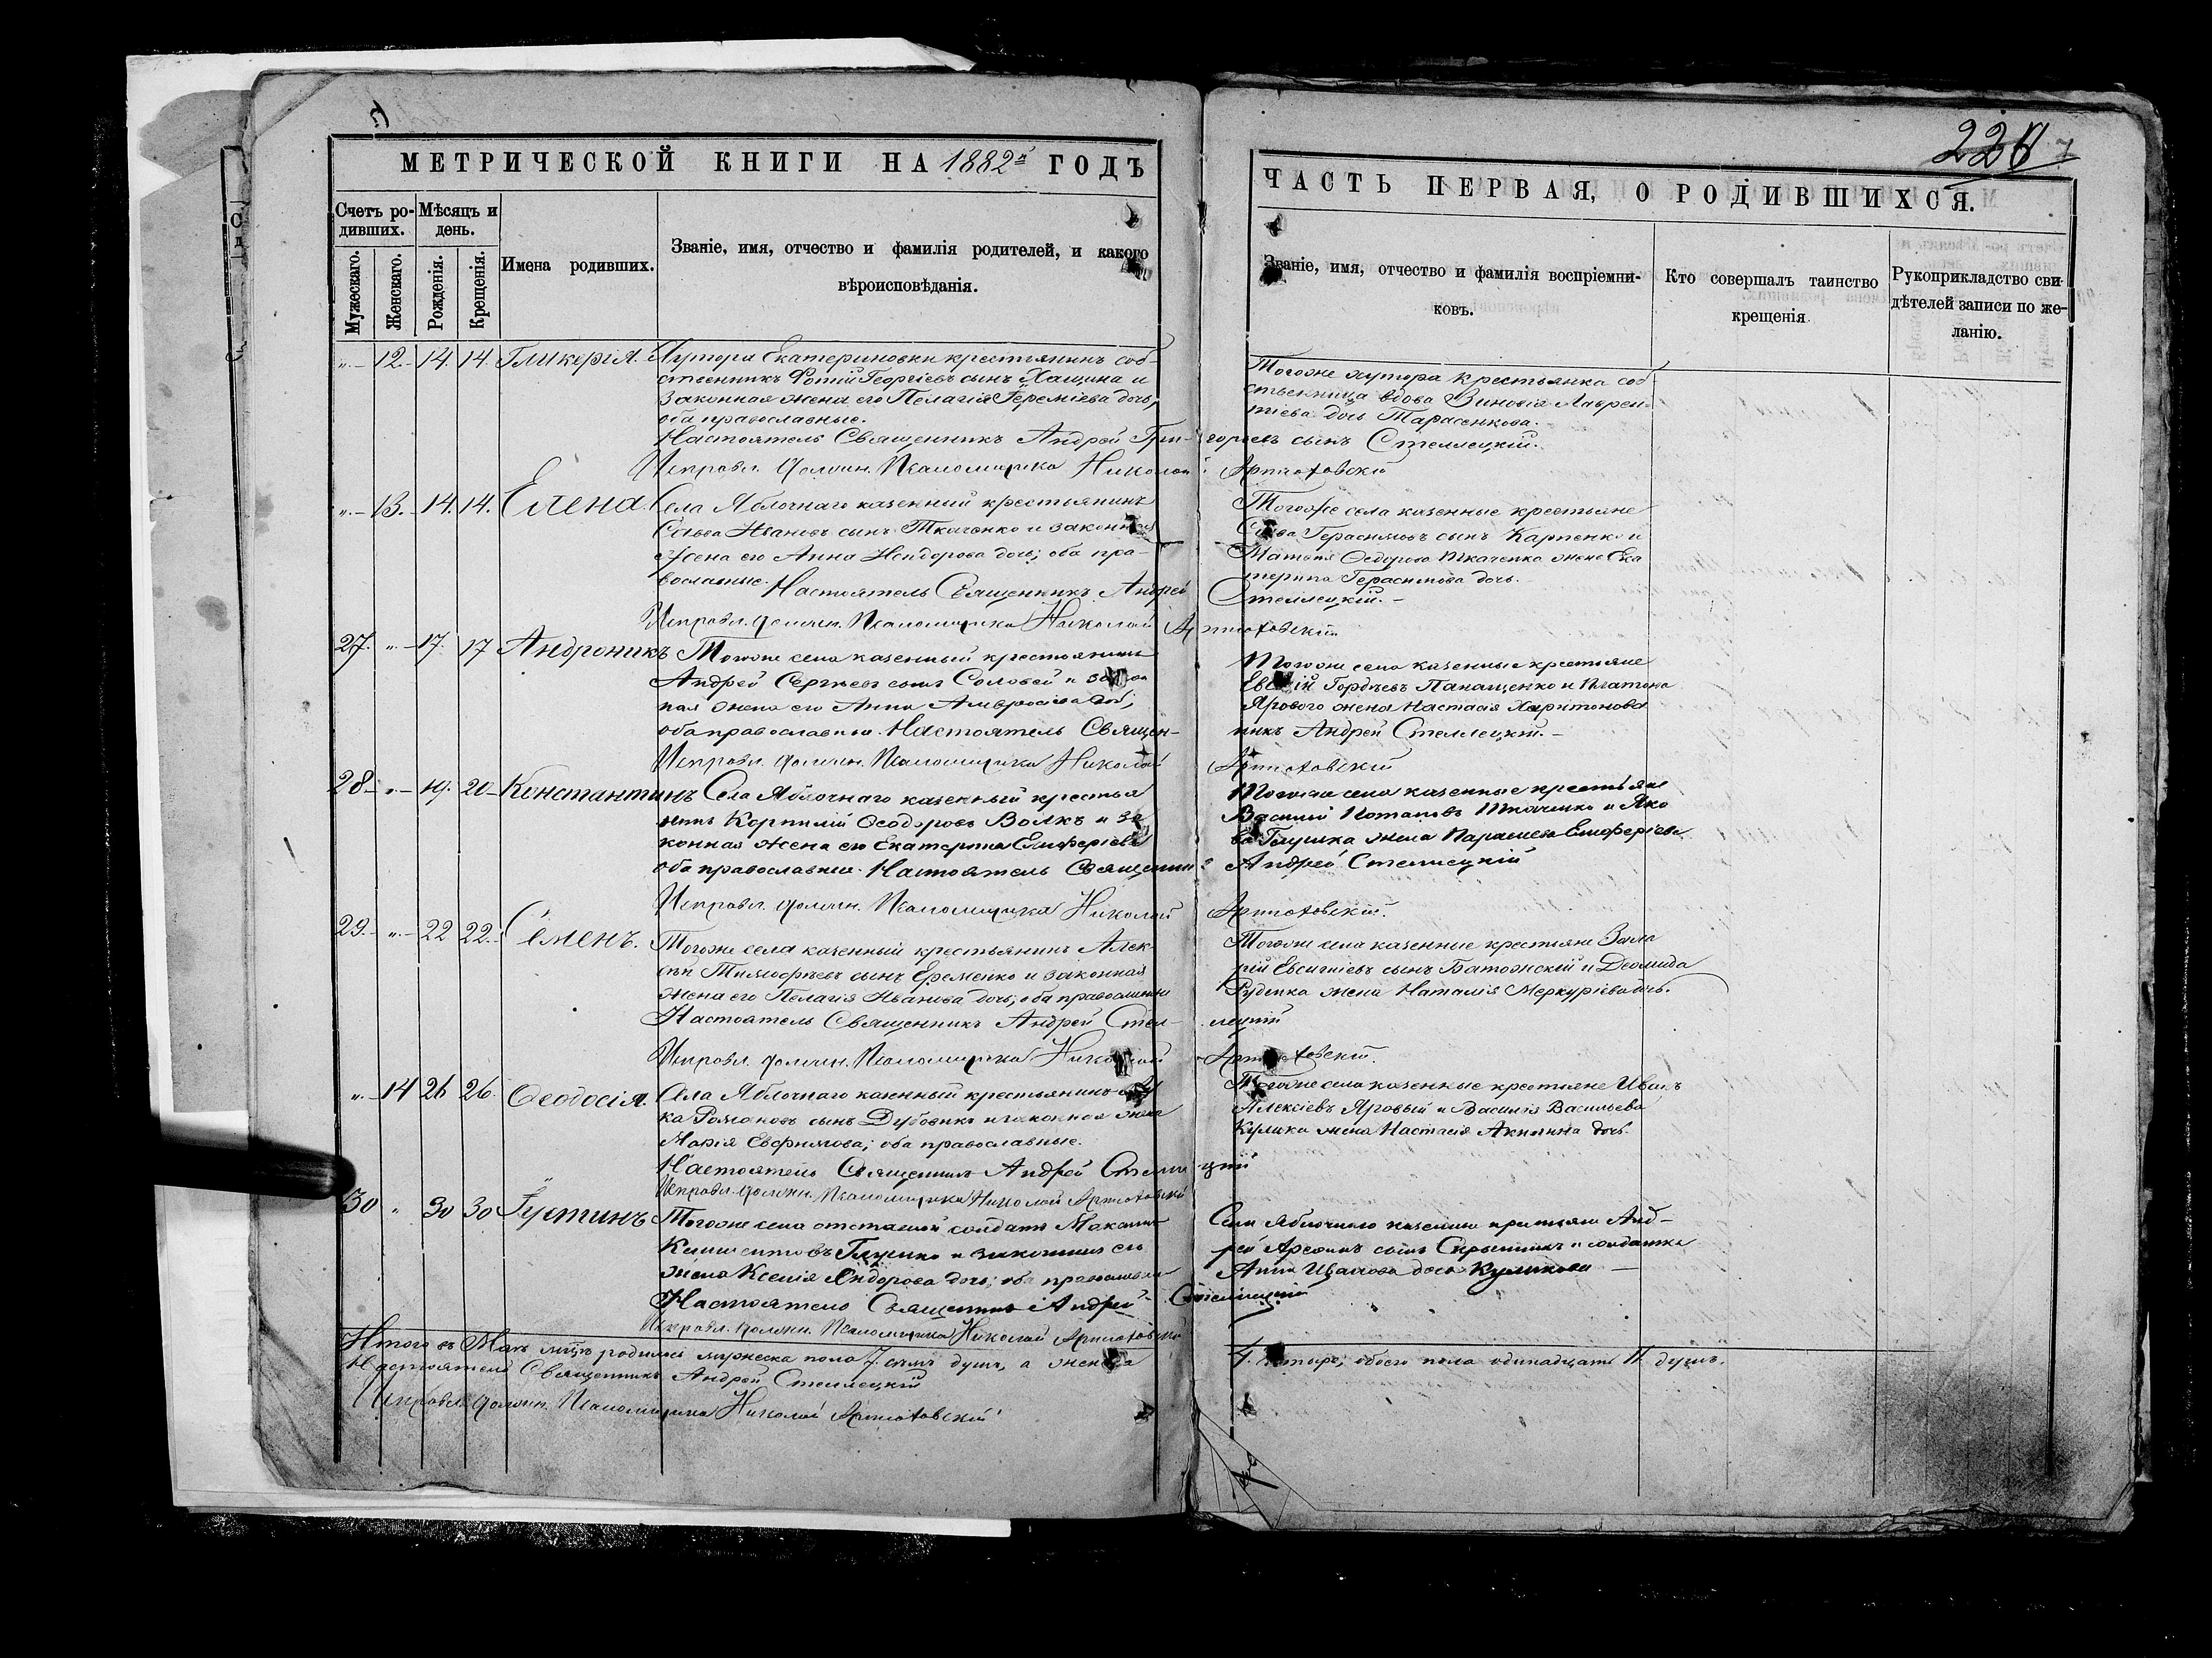 МЕТРИЧЕСКОЙ КНИГИ НА 1882й ГОДЪ
Счетъ родивших.
Мѣсяцъ и день.
Мужескаго.
Женскаго.
Рожденія.
Крещенія.
Имена родивших.
Званіе, имя, отчество и фамилія родителей, и какого
вѣроисповѣданія.
„ 12. 14. 14. Гликерія. Хутора Екатериновки крестьянинъ соб-
ственникъ Фотій Георгіевъ сынъ Хацина и
законная жена его Пелагія Іереміева дочь,
оба православные.
Настоятель Священникъ Андрей Гри-
Исправл. должн. Псаломщика Николай
„ 13. 14. 14. Елена. Села Яблочнаго казенный крестьянинъ
Савва Ивановъ сынъ Ткаченко и законная
жена его Анна дочь; оба пра-
вославные. Настоятель Священникъ Андрей
Исправл. должн. Псаломщика Николай
27. „ 17. 17 Андроникъ Тогоже села казенный крестьянинъ
Андрей Сергѣевъ сынъ Соловей и закон
ная жена его Анна Амвросіева
оба православные. Настоятель Священ-
Исправл. должн. Псаломщика Николай
28 „ 19. 20 Константинъ Села Яблочнаго казенный крестья
нинъ Корнилій Ѳеодоровъ Волкъ и за
конная жена его Екатерина Елеферіева
оба православные. Настоятель Священник
Исправл. должн. Псаломщика Николай
29. „ 22 22. Семенъ. Тогоже села казенный крестьянинъ Алек
сѣй Тимофѣевъ сынъ Еременко и законная
жена его Пелагія Иванова дочь; оба православные
Настоятель Священникъ Андрей Стел-
Исправл. должн. Псаломщика Николай
„ 14 26 26. Ѳеодосія. Села Яблочнаго казенный крестьянинъ Лу
ка Романовъ сынъ Дубовикъ и законная жена
Марія Евфимова; оба православные.
Настоятель Священникъ Андрей Стелле
Исправл. должн. Псаломщика Николай Артюховскій
30 „ 30 30 Іустинъ Тогоже села отставной солдатъ Максимъ
Климентовъ Глушко и законная его
жена Ксенія дочь; оба православные
Настоятель Священникъ Андрей
Исправл. должн. Псаломщика Николай Артюховскій
Итого въ Маѣ мѣсяцѣ родилось мужеска пола 7. семь душъ, а женска
Настоятель Священникъ Андрей Стеллецкій
Исправл. должн. Псаломщика Николай Артюховскій
ЧАСТЬ ПЕРВАЯ, О РОДИВШИХСЯ.
Званіе, имя, отчество и фамилія воспріемни-
ковъ.
Кто совершалъ таинство
крещенія.
Рукоприкладство сви-
дѣтелей записи по же-
ланію.
Тогоже хутора крестьянка соб
ственница вдова Зиновія Лаврен-
тіева дочь Тарасенкова.
горіевъ сынъ Стеллецкій.
Артюховскій
Тогоже села казенные крестьяне
Савва Герасимовъ сынъ Карпенко и
Ѳедорова Ткаченка жена Ека
терина Герасимова дочь.
Стеллецкій.
Артюховскій
Тогоже села казенные крестьяне
Гордѣевъ Панащенко и Платона
Ярового жена Настасія Харитонова
никъ Андрей Стеллецкій.
Артюховскій
Тогоже села казенные крестьяне
Василій Потаповъ Ткаченко и Яко
ва Глушка жена Параскева Елеферіева
Андрей Стеллецкій
Артюховскій.
Тогоже села казенные крестьяне Вале
рій Евсигніевъ сынъ Батожскій и Деомида
Руденка жена Наталія Меркуріева дочь.
лецкій
Артюховскій.
Тогоже села казенные крестьяне Иванъ
Алексіевъ Яровый и Василія Васильева
Кулика жена Настасія Акимина дочь.
цкій
Села Яблочнаго казенный крестьянинъ Анд-
рей сынъ Скрынникъ и солдатка
Анна Иванова дочь Куликова
Стеллецкій
4. четыре; обоего пола одинадцать 11 душъ.